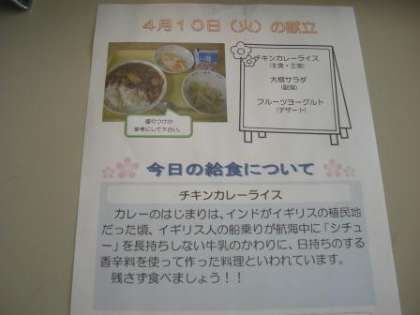 4月10日（火）の献立
チキンカレーライス
（主食・主菜）
大根サラダ
（副菜）
フルーツヨーグルト
（デザート）
盛りつけの
参考にして下さい。
今日の給食について
チキンカレーライス
カレーのはじまりは、インドがイギリスの植民地
だった頃、イギリス人の船乗りが航海中に「シチュ
ー」を長持ちしない牛乳のかわりに、日持ちのする
香辛料を使って作った料理といわれています。
残さず食べましょう！！